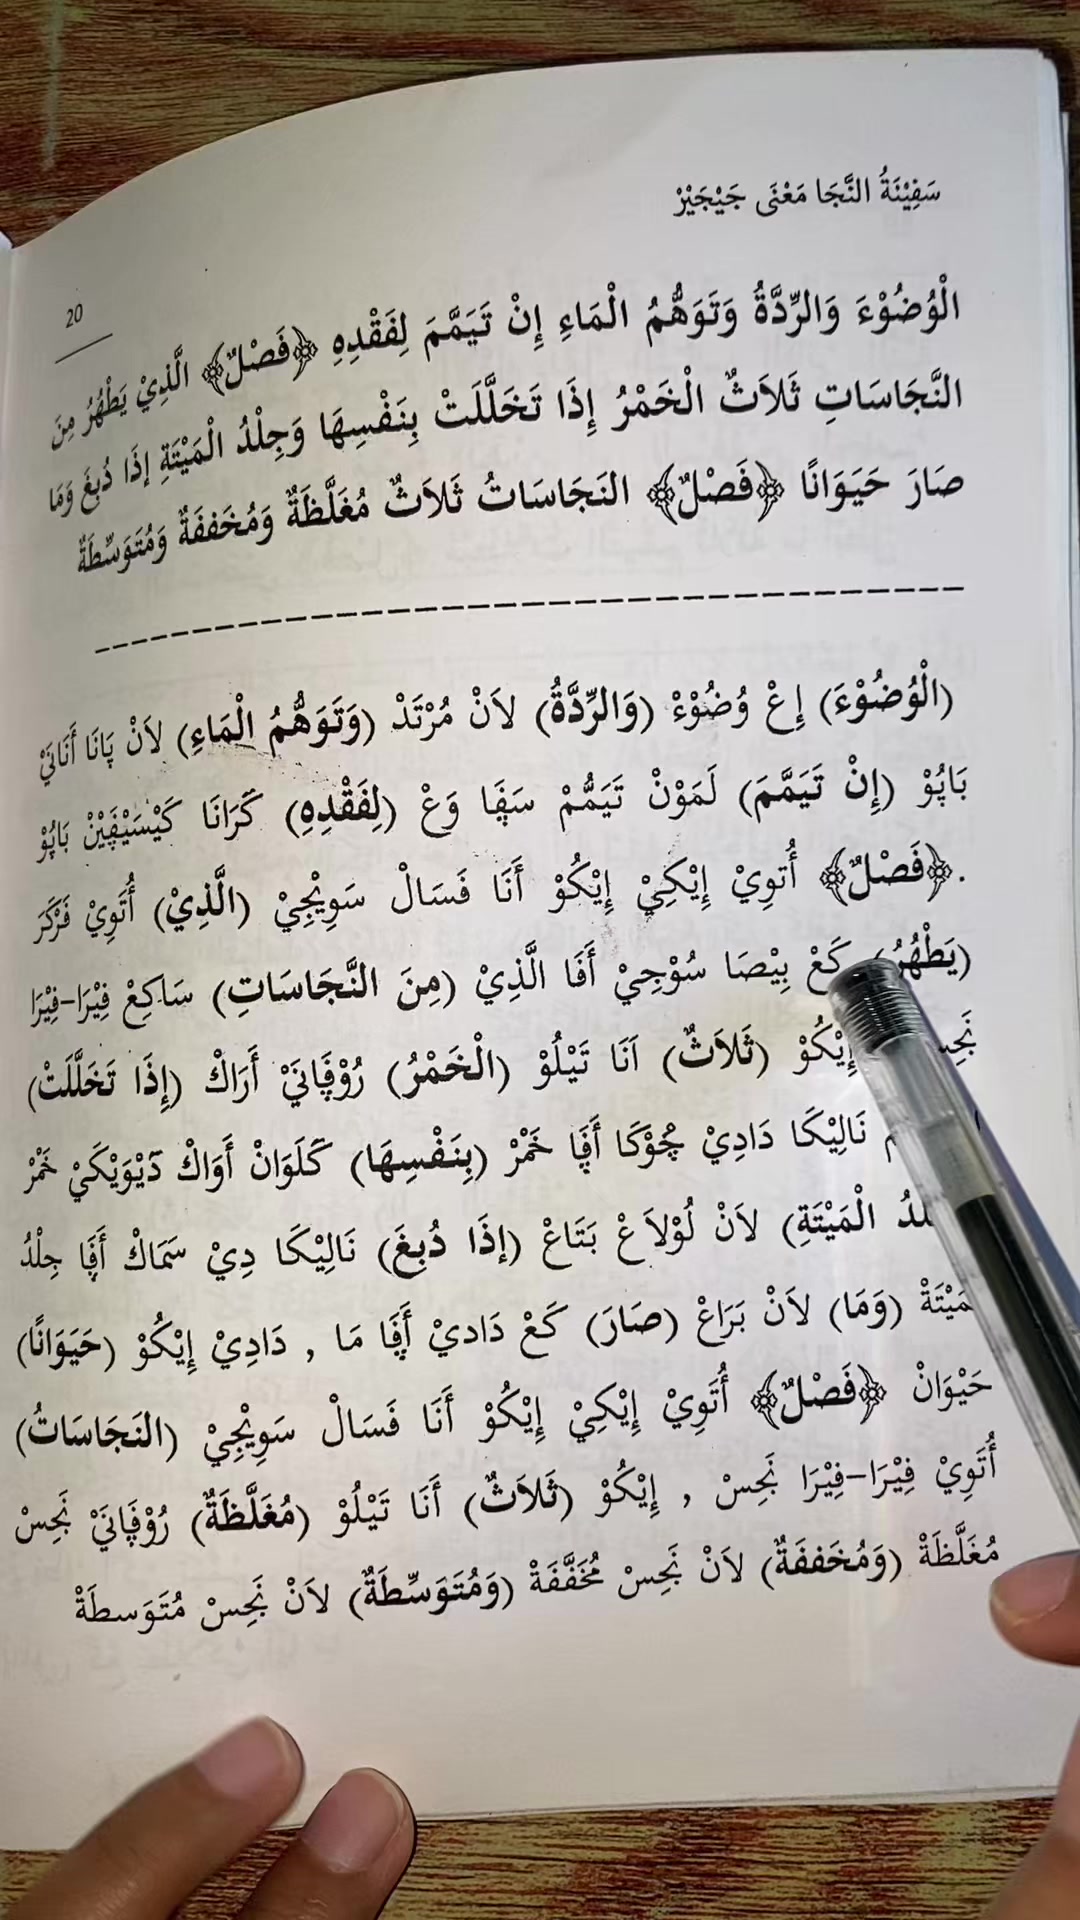 سَفِيْنَةُ النَّجَا مَعْنَى جَيْجَيْرْ
20
الْوُضُوْءَ وَالرِّدَّةُ وَتَوَهُّمُ الْمَاءِ إِنْ تَيَمَّمَ لِفَقْدِهِ ﴿فَصْلٌ﴾ الَّذِيْ يَطْهُرُ مِنَ
النَّجَاسَاتِ ثَلَاثٌ الْخَمْرُ إِذَا تَخَلَّلَتْ بِنَفْسِهَا وَجِلْدُ الْمَيْتَةِ إِذَا دُبِغَ وَمَا
صَارَ حَيَوَانًا ﴿فَصْلٌ﴾ النَجَاسَاتُ ثَلَاثٌ مُغَلَّظَةٌ وَمُخَففَةٌ وَمُتَوَسِّطَةٌ
(الْوُضُوْءَ) إِڠْ وُضُوْءْ (وَالرِّدَّةُ) لَانْ مُرْتَدْ (وَتَوَهُّمُ الْمَاءِ) لَانْ پَانَا أَنَانَيْ
بَاپُوْ (إِنْ تَيَمَّمَ) لَمَوْنْ تَيَمُّمْ سَڤَا وَڠْ (لِفَقْدِهِ) كَرَانَا كَيْسَيْڤَيْنْ بَاپُوْ
.﴿فَصْلٌ﴾ أُتَوِيْ إِيْكِيْ إِيْكُوْ أَنَا فَسَالْ سَوِيْجِيْ (الَّذِيْ) أُتَوِيْ فَرْكَرَ
(يَطْهُرُ) كَڠْ بِيْصَا سُوْجِيْ أَفَا الَّذِيْ (مِنَ النَّجَاسَاتِ) سَاكِڠْ فِيْرَا-فِيْرَا
إِيْكُوْ (ثَلَاثٌ) اَنَا تَيْلُوْ (الْخَمْرُ) رُوْڤَانَيْ أَرَاكْ (إِذَا تَخَلَّلَتْ)
نَالِيْكَا دَادِيْ چُوْكَا أَڤَا خَمْرْ (بِنَفْسِهَا) كَلَوَانْ أَوَاكْ دَيْوَيْكَيْ خَمْرْ
الْمَيْتَةِ) لَانْ لُوْلَاڠْ بَتَاڠْ (إِذَا دُبِغَ) نَالِيْكَا دِيْ سَمَاكْ أَڤَا جِلْدُ
(وَمَا) لَانْ بَرَاڠْ (صَارَ) كَڠْ دَادِيْ أَڤَا مَا , دَادِيْ إِيْكُوْ (حَيَوَانًا)
حَيْوَانْ ﴿فَصْلٌ﴾ أُتَوِيْ إِيْكِيْ إِيْكُوْ أَنَا فَسَالْ سَوِيْجِيْ (النَجَاسَاتُ)
أُتَوِيْ فِيْرَا-فِيْرَا نَجِسْ , إِيْكُوْ (ثَلَاثٌ) أَنَا تَيْلُوْ (مُغَلَّظَةٌ) رُوْڤَانَيْ نَجِسْ
مُغَلَّظَةْ (وَمُخَففَةٌ) لَانْ نَجِسْ مُخَفَّفَةْ (وَمُتَوَسِّطَةٌ) لَانْ نَجِسْ مُتَوَسطَةْ